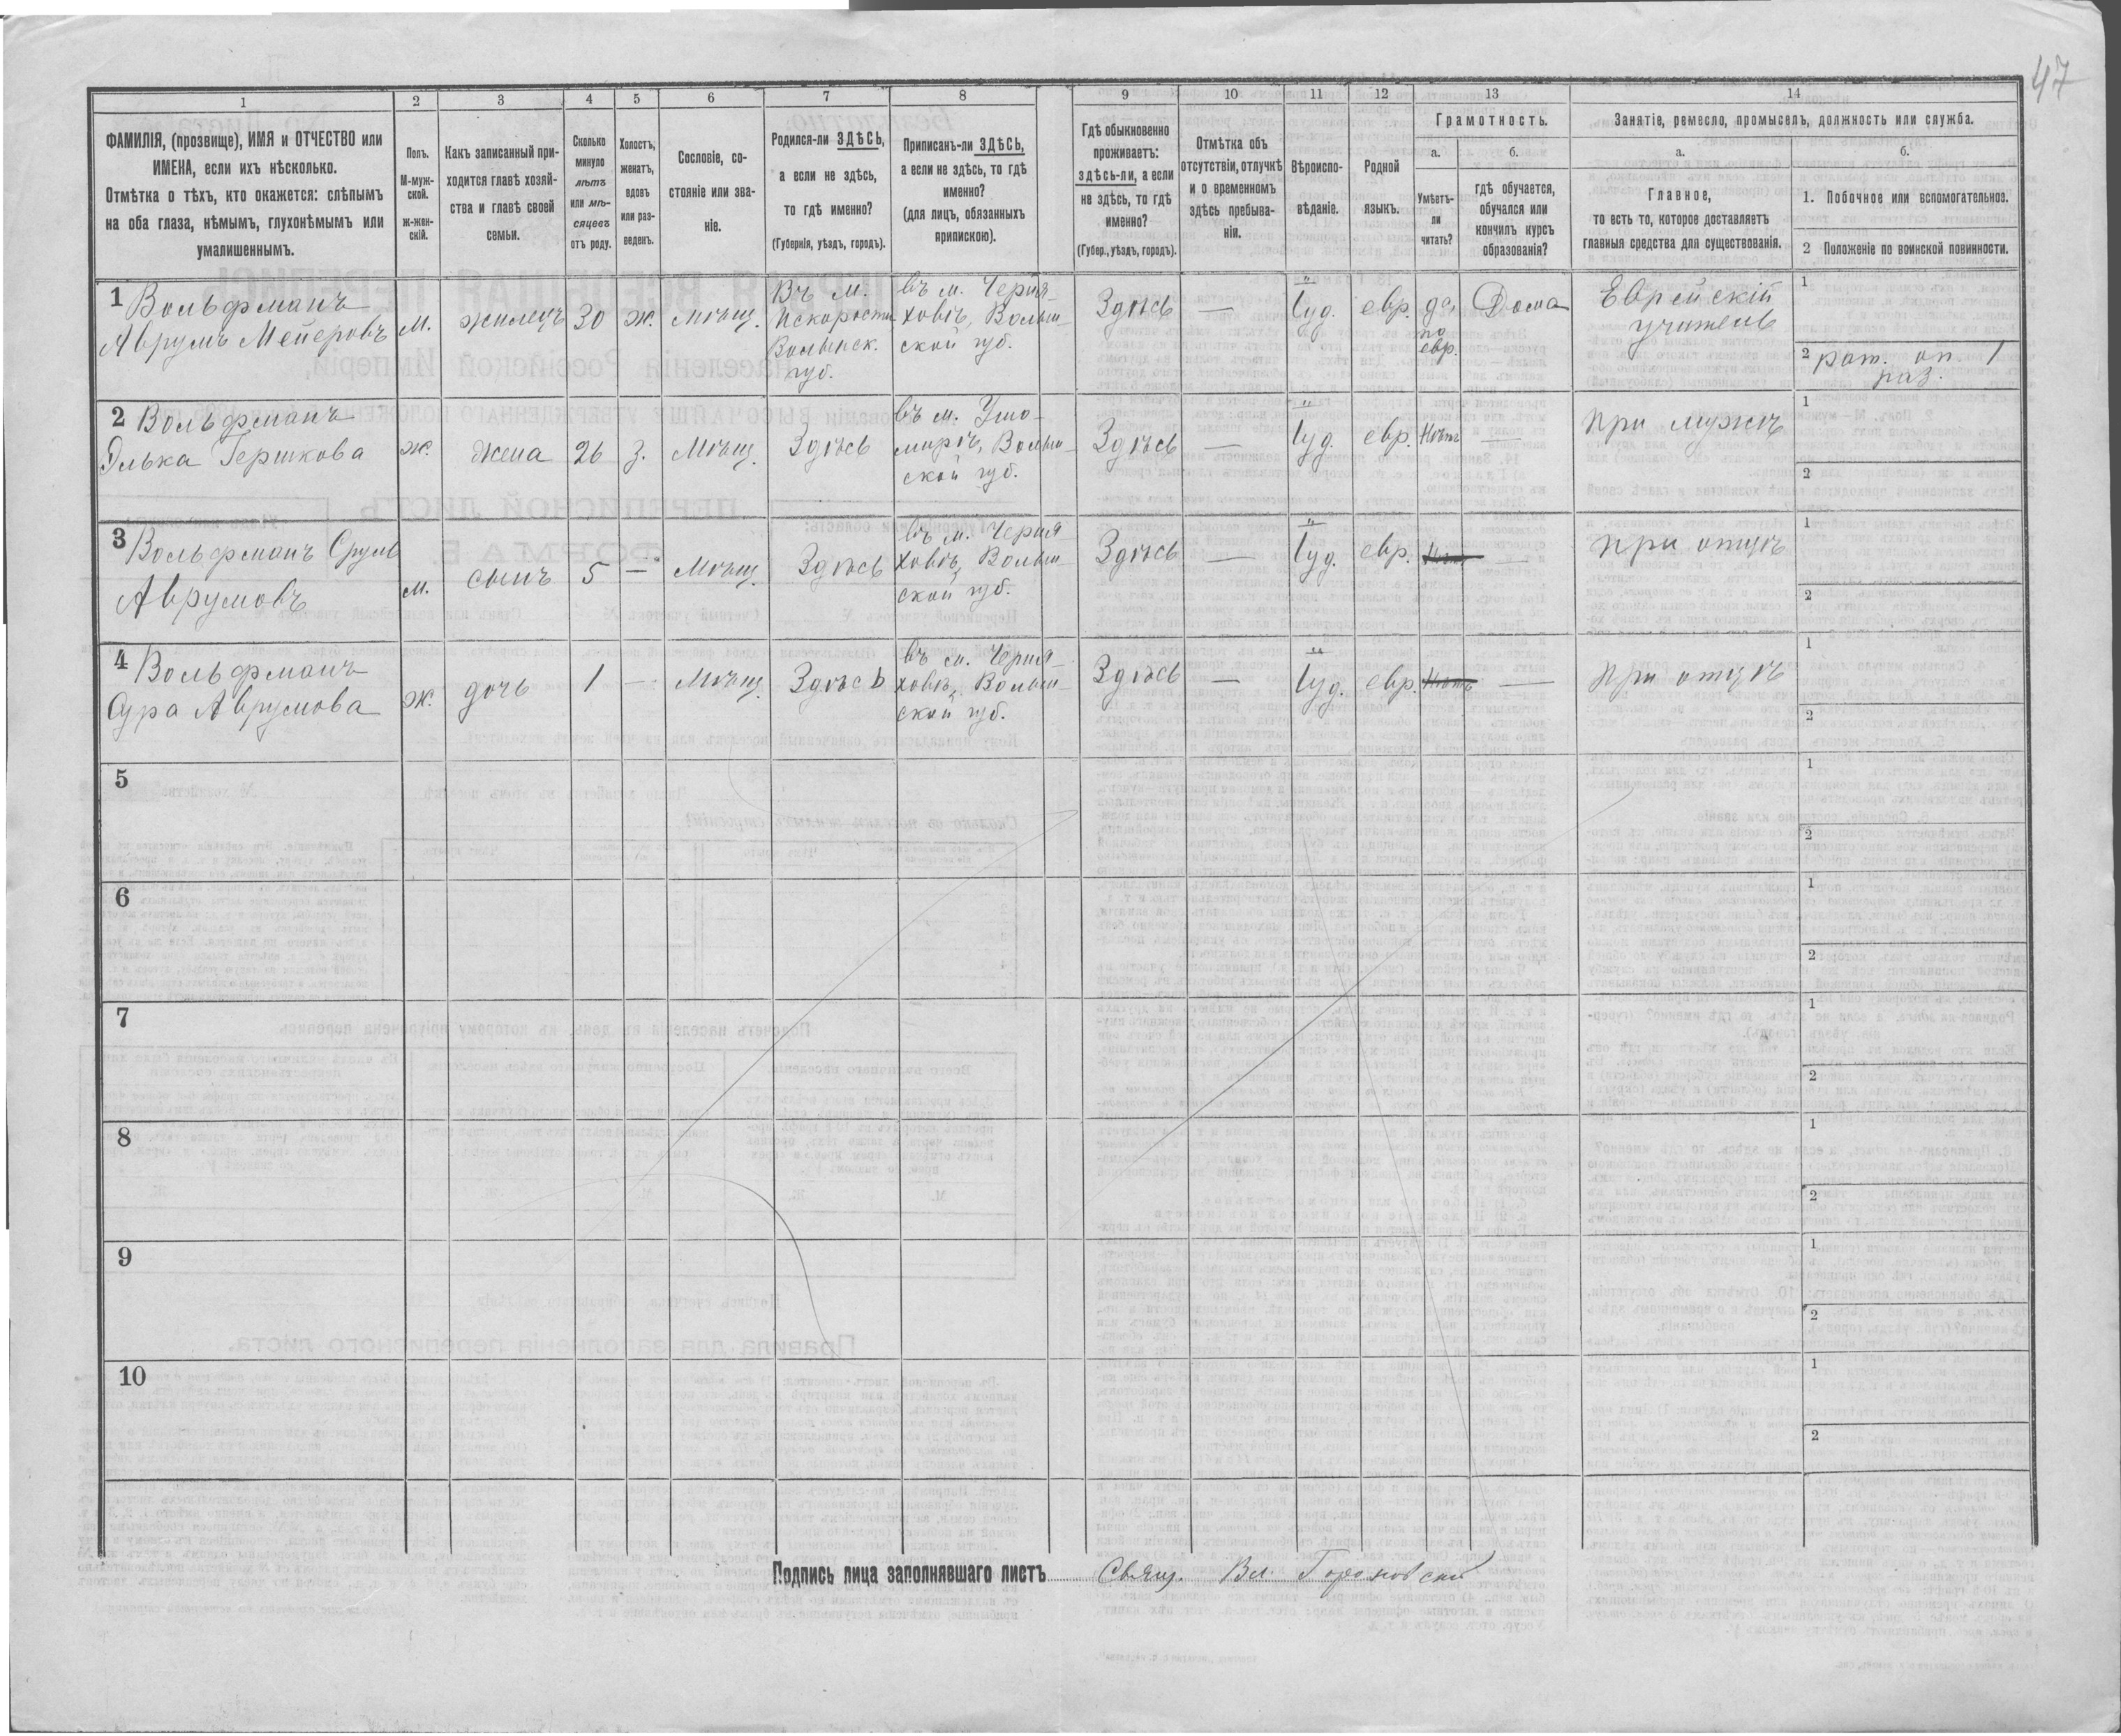 47
1
2
3
4
5
6
7
8
9
10
11
12
13
14
ФАМИЛІЯ, (прозвище), ИМЯ и ОТЧЕСТВО или
ИМЕНА, если ихъ нѣсколько.
Отмѣтка о тѣхъ, кто окажется: слѣпымъ
на оба глаза, нѣмымъ, глухонѣмымъ или
умалишеннымъ.
Полъ.
М-муж-
ской.
ж-жен-
скій.
Какъ записанный при-
ходится главѣ хозяй-
ства и главѣ своей
семьи.
Сколько
минуло
лѣтъ
или мѣ-
сяцевъ
отъ роду.
Холостъ,
женатъ,
вдовъ
или раз-
веденъ.
Сословіе, со-
стояніе или зва-
ніе.
Родился-ли ЗДѢСЬ,
а если не здѣсь,
то гдѣ именно?
(Губернія, уѣздъ, городъ).
Приписанъ-ли ЗДѢСЬ,
а если не здѣсь, то гдѣ
именно?
(для лицъ, обязанныхъ
припискою).
Гдѣ обыкновенно
проживаетъ:
здѣсь-ли, а если
не здѣсь, то гдѣ
именно?
(Губер., уѣздъ, городъ).
Отмѣтка объ
отсутствіи, отлучкѣ
и о временномъ
здѣсь пребыва-
ніи.
Вѣроиспо-
вѣданіе.
Родной
языкъ.
Грамотность.
а.
Умѣетъ-
ли
читать?
б.
гдѣ обучается,
обучался или
кончилъ курсъ
образованія?
Занятіе, ремесло, промыселъ, должность или служба.
а.
Главное,
то есть то, которое доставляетъ
главныя средства для существованія.
б.
1. Побочное или вспомогательное.
2 Положеніе по воинской повинности.
1 Вольфманъ
Аврумъ Мейеровъ
м.
жилецъ
30
ж.
мѣщ.
Въ м.
Искорости
Волынск.
губ.
въ м. Черня-
ховѣ, Волын-
ской губ.
Здѣсь
—
Іуд.
евр.
да,
по
евр.
Дома
Еврейскій
учитель
1
2 рат. оп. 1
раз.
2 Вольфманъ
Элька Гершкова
ж.
жена
26
з.
Мѣщ.
Здѣсь
въ м. Ушо-
мирѣ, Волын-
ской губ.
Здѣсь
—
Іуд.
евр.
Нѣтъ
—
при мужѣ
1
2
3 Вольфманъ Сруль
Аврумовъ
м.
сынъ
5
—
Мѣщ.
Здѣсь
въ м. Черня
ховѣ, Волын-
ской губ.
Здѣсь
—
Іуд.
евр.
Нѣтъ
—
при отцѣ
1
2
4 Вольфманъ
Сура Аврумова
ж.
дочь
1
—
Мѣщ.
Здѣсь
въ м. Черня-
ховѣ, Волын-
ской губ.
Здѣсь
—
Іуд.
евр.
Нѣтъ
—
при отцѣ
1
2
5
1
2
6
1
2
7
1
2
8
1
2
9
1
2
10
1
2
Подпись лица заполнявшаго листъ Свящ. Вл.